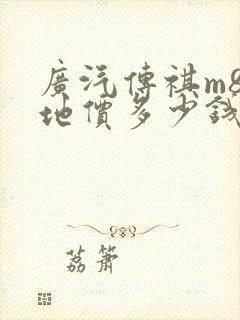 廣汽傳祺m8
地價多少錢
荔簫